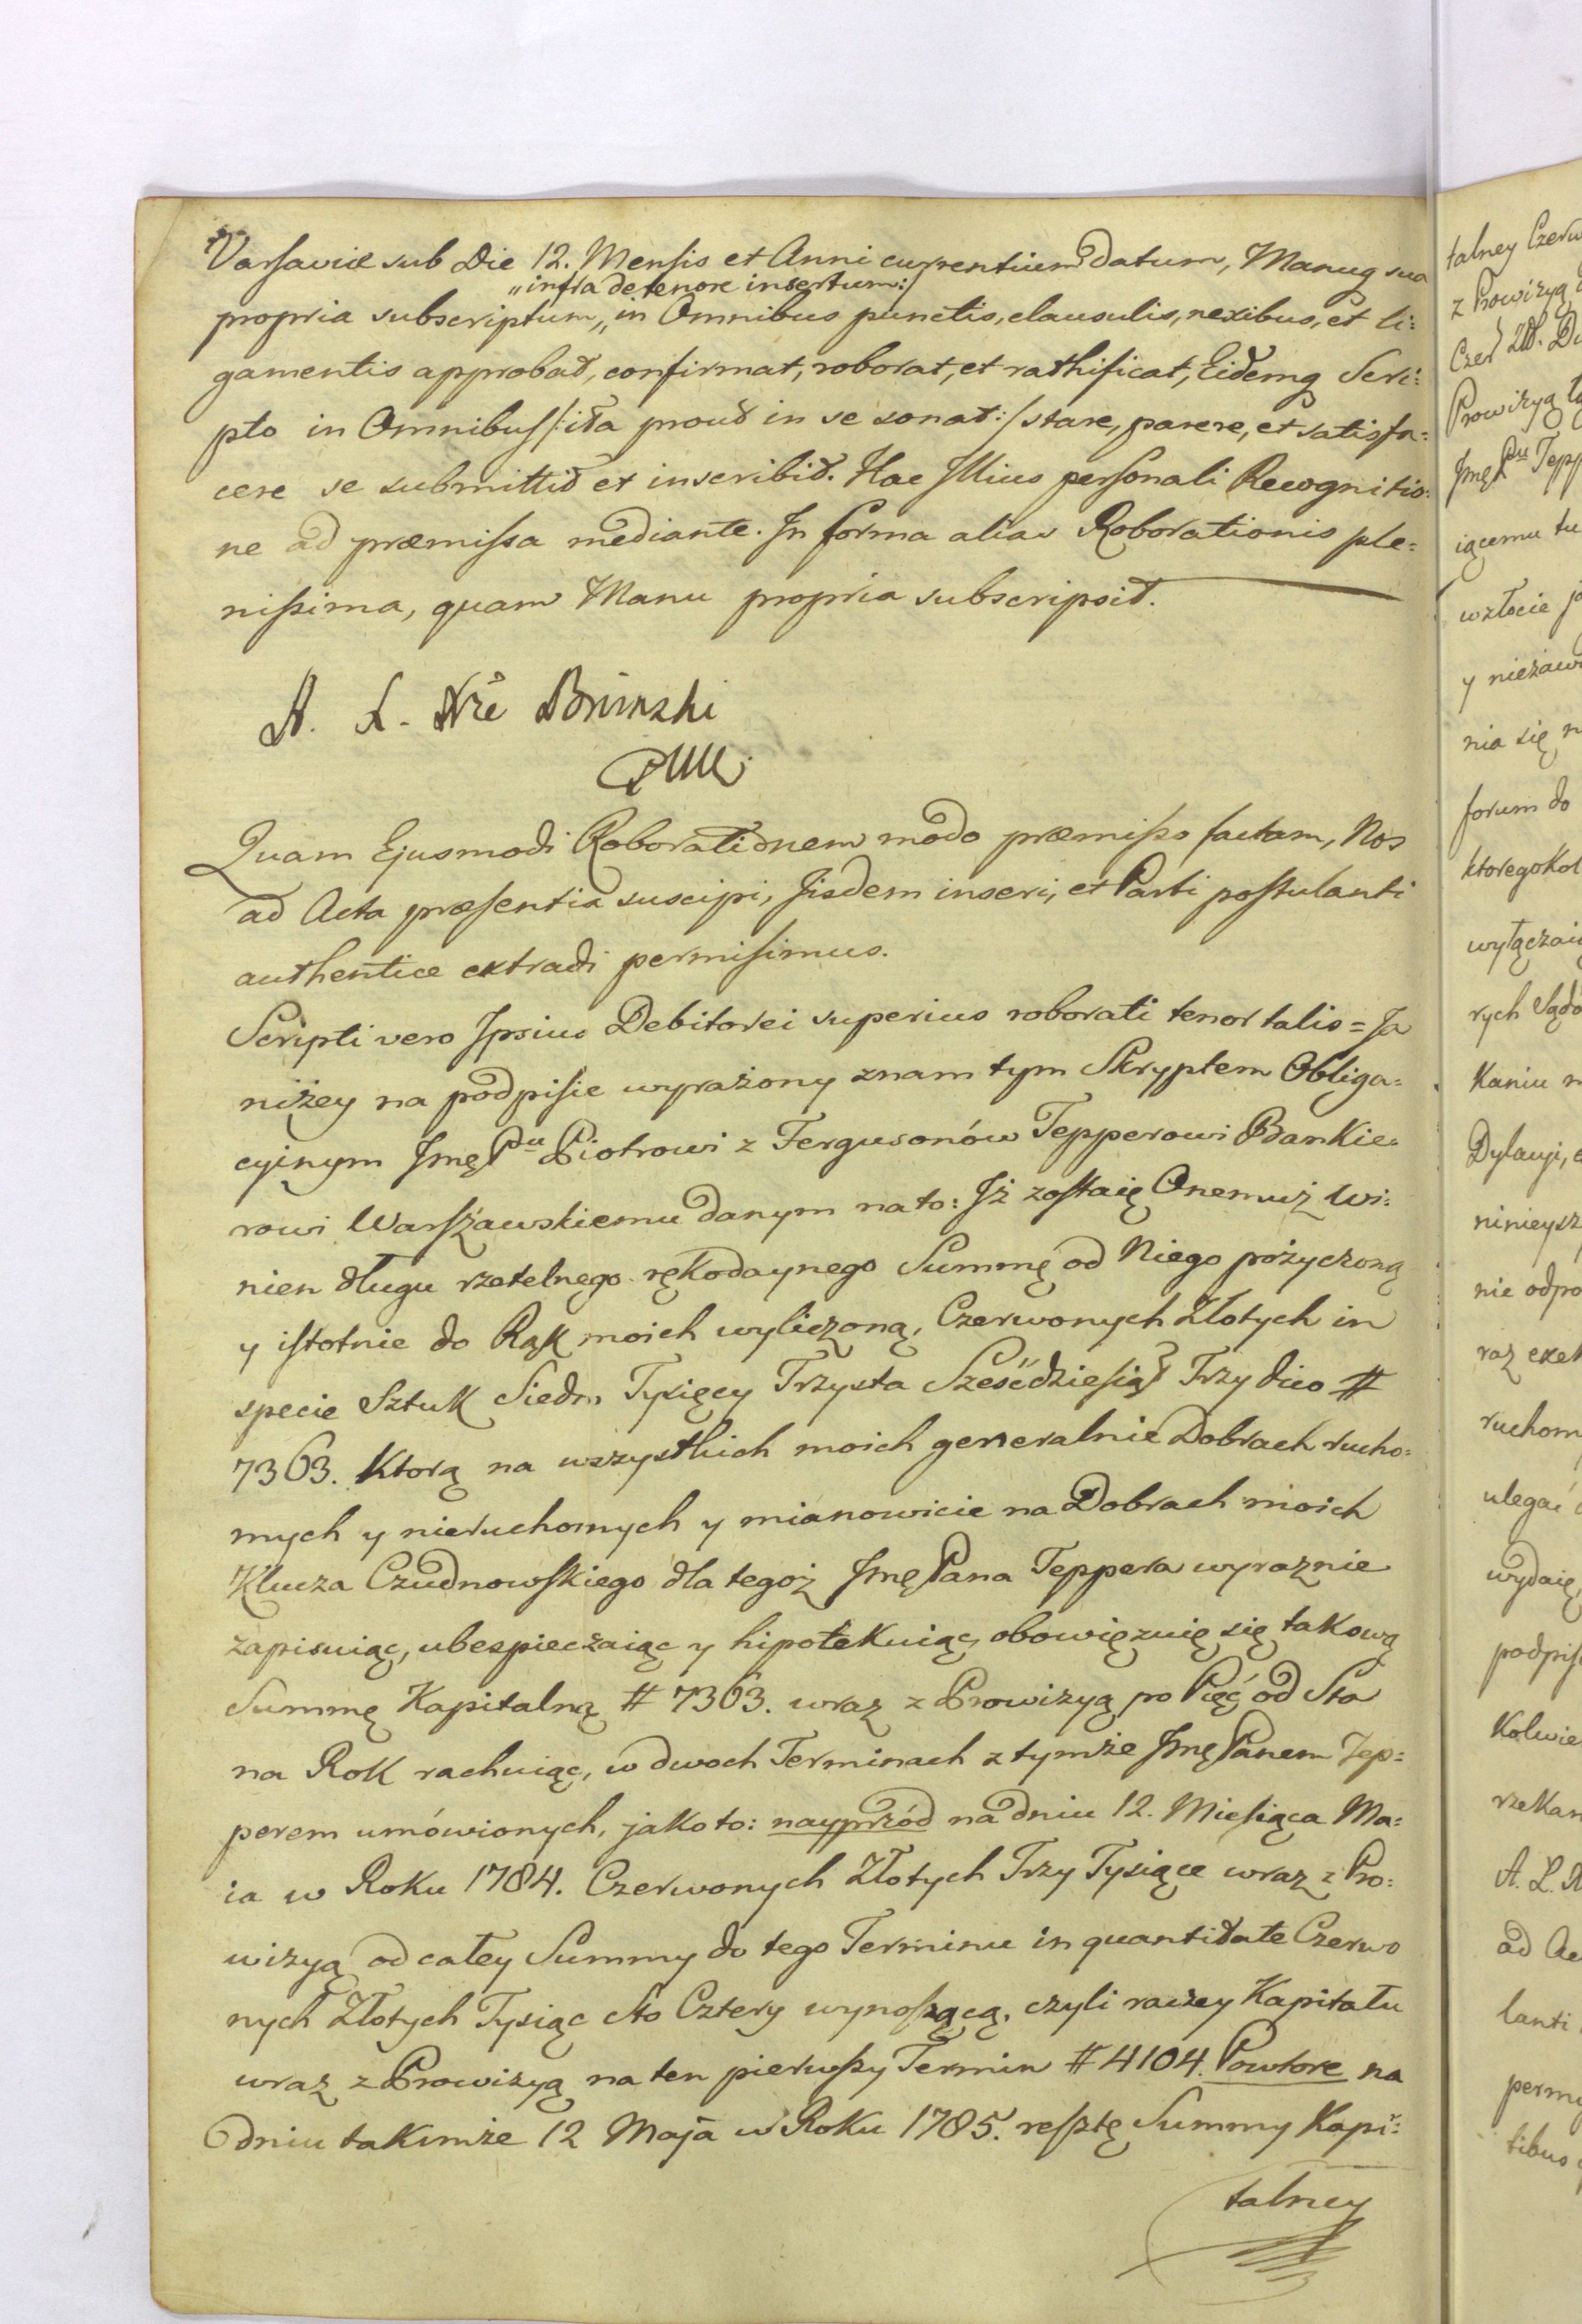 Varsaviæ sub Die 12. Mensis et Anni currentium datum, Manuq sua
„infra de tenore insertum:/
propria subscriptum,„ in Omnibus punctis, clausulis, nexibus, et li:
gamentis approbat, confirmat, roborat, et rathificat, Eidemq Scri:
pto in Omnibus /:ita prout in se sonat:/ stare, parere, et satisfa:
cere se submittit et inscribit. Hac Illius personali Recognitio:
ne ad præmissa mediante. In forma alias Roborationis ple:
nissima, quam Manu propria subscripsit.
A. X.
Quam Ejusmodi Roborationem modo præmisso factam, Nos
ad Acta præsentia suscipi, Iisdem inseri, et Parti postulanti
authentice extradi permisimus.
Scripti vero Ipsius Debitorei superius roborati tenor talis = Ja
niżey na podpisie wyrażony znam tym Skryptem Obliga:
cyinym Jmę Pu Piotrowi z Fergusonów Tepperowi Bankie:
rowi Warszawskiemu danym na to: Iż zostaię Onemuż wi:
nien długu rzetelnego rękodaynego Summę od Niego pożyczoną
y istotnie do Rąk moich wyliczoną, Czerwonych Złotych in
specie Sztuk Siedm Tysięcy Trzysta Sześćdziesiąt Trzy dico #
7363. Ktorą na wszystkich moich generalnie Dobrach rucho:
mych y nieruchomych y mianowicie na Dobrach moich
Klucza Czudnowskiego dla tegoż Jmę Pana Teppera wyraznie
zapisuiąc, ubespieczaiąc y hipotekuiąc, obowięzuię się takową
Summę Kapitalną # 7363. wraz z Prowizyą po Pięć od Sta
na Rok rachuiąc, w dwoch Terminach z tymże Jmę Panem Tep:
perem umówionych, jako to: nayprzód na dniu 12. Miesiąca Ma:
ia w Roku 1784. Czerwonych Złotych Trzy Tysiące wraz z Pro:
wizyą od całey Summy do tego Terminu in quantitate Czerwo
nych Złotych Tysiąc Sto Cztery wynoszącą, czyli raczey Kapitału
wraz z Prowizyą na ten pierwszy Termin # 4104. Powtore na
dniu takimże 12 Maja w Roku 1785. resztę Summy Kapi:
talney
talney Czerw
z Prowizyą
Czer Zł. Du
Prowizyą
Jmę Pu Tepp
iącemu tu
wzłocie
y nieżaw
nia się n
forum do
ktoregokol
wyłączaią
rych Sądo
kaniu
Dylacyi,
ninieysz
nie odpo
raz exek
ruchom
ulegać
wydaię
podpis
Kolwie
rzekan
A. X.
ad Ac
lanti
permi
tibus